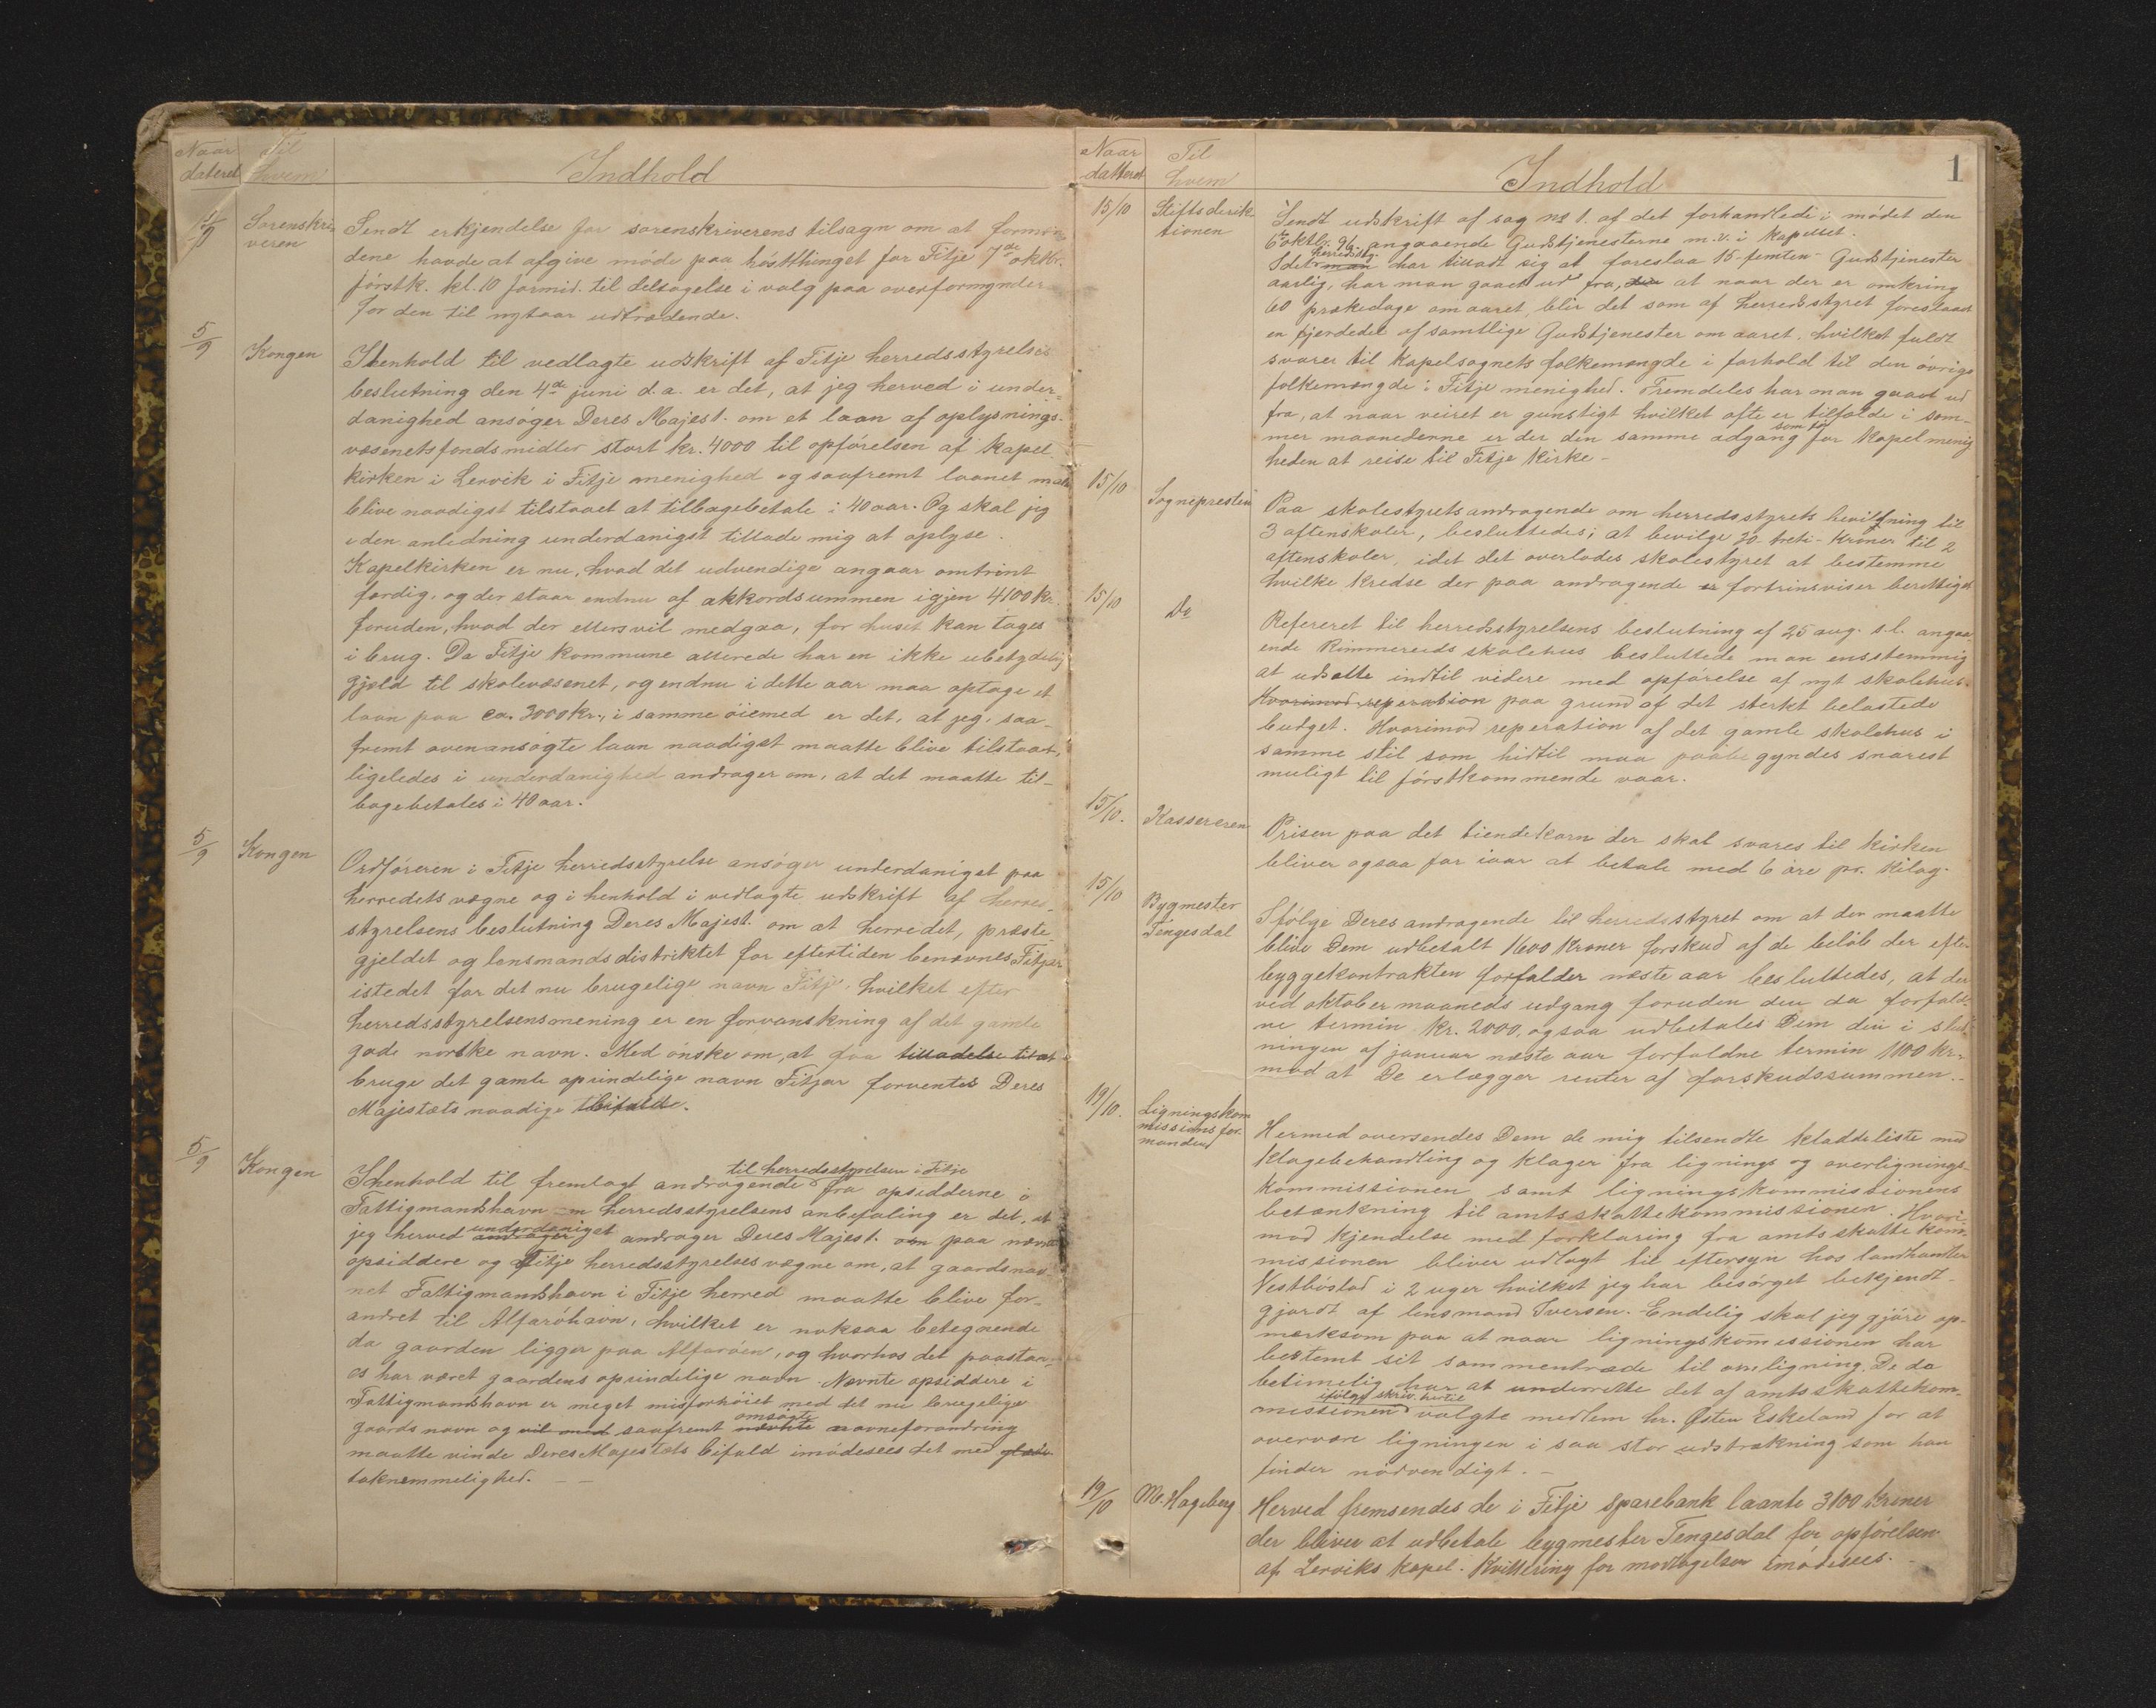 Naar dateret
Til hvem
Indhold
5/9
Sorenskri
veren
Sendt erkjendelse for sorenskriverens tilsagn om at formæn
dene havde at afgive møde paa høstthinget for Fitje 7de oktbr.
førstk. kl. 10 formid. til deltagelse i valg paa overformynder
for den til nytaar udtrædende.
5/9
Kongen
I henhold til vedlagte udskrift af Fitje herredsstyrelses
beslutning den 4de juni d.a. er det, at jeg herved i under-
danighed ansøger Deres Majest. om et laan af oplysnings-
væsenets fondsmidler stort kr. 4000 til opførelsen af kapel
kirken i Lervik i Fitje menighed og saafremt laanet maatte
blive naadigst tilstaaet at tilbagebetale i 40 aar. Og skal jeg
i den anledning underdanigst tillade mig at oplyse.
Kapelkirken er nu, hvad det udvendige angaar omtrent
færdig, og der staar endnu af akkordsummen igjen 4100 kr.
foruden, hvad der ellers vil medgaa, før huset kan tages
i brug. Da Fitje kommune allerede har en ikke ubetydelig
gjæld til skolevæsenet, og endnu i dette aar maa optage et
laan paa ca. 3000 kr., i samme øiemed er det, at jeg, saa-
fremt ovenansøgte laan naadigst maatte blive tilstaaet,
ligeledes i underdanighed andrager om, at det maatte til-
bagebetales i 40 aar.
5/9
Kongen
Ordføreren i Fitje herredsstyrelse ansøger underdanigst paa
herredets vægne og i henhold i vedlagte udskrift af herred-
styrelsens beslutning Deres Majest. om at herredet, præste
gjeldet og lensmandsdistriktet for eftertiden benævnes Fitjar
istedet for det nu brugelige navn Fitje, hvilket efter
herredsstyrelsens mening er en forvanskning af det gamle
gode norske navn. Med ønske om, at faa tilladelse til at
bruge det gamle oprindelige navn Fitjar forventes Deres
Majestæts naadige bifald.
5/9
Kongen
til herredsstyrelsen i Fitje
I henhold til fremlagt andragende fra opsidderne i
Fattigmandshavn herredsstyrelsens anbefaling er det, at
underdanigst
jeg herved andrager andrager Deres Majest. om paa nævnte
opsiddere og Fitje herredsstyrelses vægne om, at gaardsnav
net Fattigmandshavn i Fitje herred maatte blive for-
andret til Alfaröhavn, hvilket er noksaa betegnende
da gaarden ligger paa Alfaröen, og hvorhos det paastaa-
es har været gaardens oprindelige navn. Nævnte opsiddere i
Fattigmandshavn er meget misfornøiet med det nu brugelige
omsøgte
gaards navn og vil med saafremt nævnte navneforandring
maatte vinde Deres Majestæts bifald imødesees det med glæde
taknemmelighed. — —
Naar datteret
Til hvem
Indhold
1
15/10
Stiftsderik-
tionen
Sendt udskrift af sag no 1. af det forhandlede i mødet den
6te oktbr. 96. angaaende Gudstjenesterne m.v. i kapellet.
herredsst.
Idet man har tilladt sig at foreslaa 15-femten- Gudstjenester
aarlig, har man gaaet ud fra, at naar der er omkring
60 prækedage om aaret, blir det som af herredsstyret foreslaaet
en fjerdedel af samtlige Gudstjenester om aaret, hvilket fuldt
svarer til kapelsognets folkemængde i forhold til den øvrige
folkemængde i Fitje menighed. Fremdeles har man gaaet ud
fra, at naar veiret er gunstigt hvilket ofte er tilfælde i som-
mer maanederne er der den samme adgang for kapelmenig
heden at reise til Fitje kirke —
15/10
Sognepresten
Paa skolestyrets andragende om herredsstyrets bevilgning til
3 aftenskoler, besluttedes; at bevilge 30-treti-kroner til 2
aftenskoler, idet det overlodes skolestyret at bestemme
hvilke kredse der paa andragende er fortrinsviser berettiget
15/10
Do
Refereret til herredsstyrelsens beslutning af 25 aug. s.l. angaa-
ende Rimmereids skolehus besluttede man enstemmig
at udsætte indtil videre med opførelse af nyt skolehus.
Hvorimod reperation paa grund af det sterkt belastede
budget. Hvorimod reperation af det gamle skolehus i
samme stil som hidtil maa paabegyndes snarest
muligt til førstkommende vaar.
15/10.
Kassereren
Prisen paa det tiendekorn der skal svares til kirken
bliver ogsaa for iaar at betale med 6 øre pr. kilog.
15/10
Bygmester
Tengesdal
Ifølge Deres andragende til herredsstyret om at der maatte
blive Dem udbetalt 1600 kroner forskud af de beløb der efter
byggekontrakten forfalder næste aar besluttedes, at der
ved oktober maaneds udgang foruden den da forfald-
ne termin kr. 2000, ogsaa udbetales Dem den i slut
ningen af januar næste aar forfaldne termin 1100 kr.
mod at De erlægger renter af forskudssummen.
19/10.
Ligningskom
missions for-
manden
Hermed oversendes Dem de mig tilsendte kladdeliste med
klagebehandling og klager fra lignings og overlignings-
kommissionen samt ligningskommissionens
betænkning til amtsskattekommissionen. Hvori-
mod kjendelse med forklaring fra amtsskattekom-
missionen bliver udlagt til eftersyn hos landhandler
Vestbøstad i 2 uger hvilket jeg har besørget bekjendt-
gjordt af lensmand Iversen. Endelig skal jeg gjøre op-
merksom paa at naar ligningskommissionen har
bestemt sit sammentræde til omligning, De da
betimelig har at underrette det af amtsskattekom-
ifølge skriv. hertil
missionen valgte medlem hr. Østen Eskeland for at
overvære ligningen i saa stor udstrækning som han
finder nødvendigt. —
19/10
M. Hageberg
Herved fremsendes de i Fitje sparebank laante 3100 kroner
der bliver at udbetale bygmester Tengesdal for opførelsen
af Lerviks kapel. Kvittering for modtagelsen imødesees. —